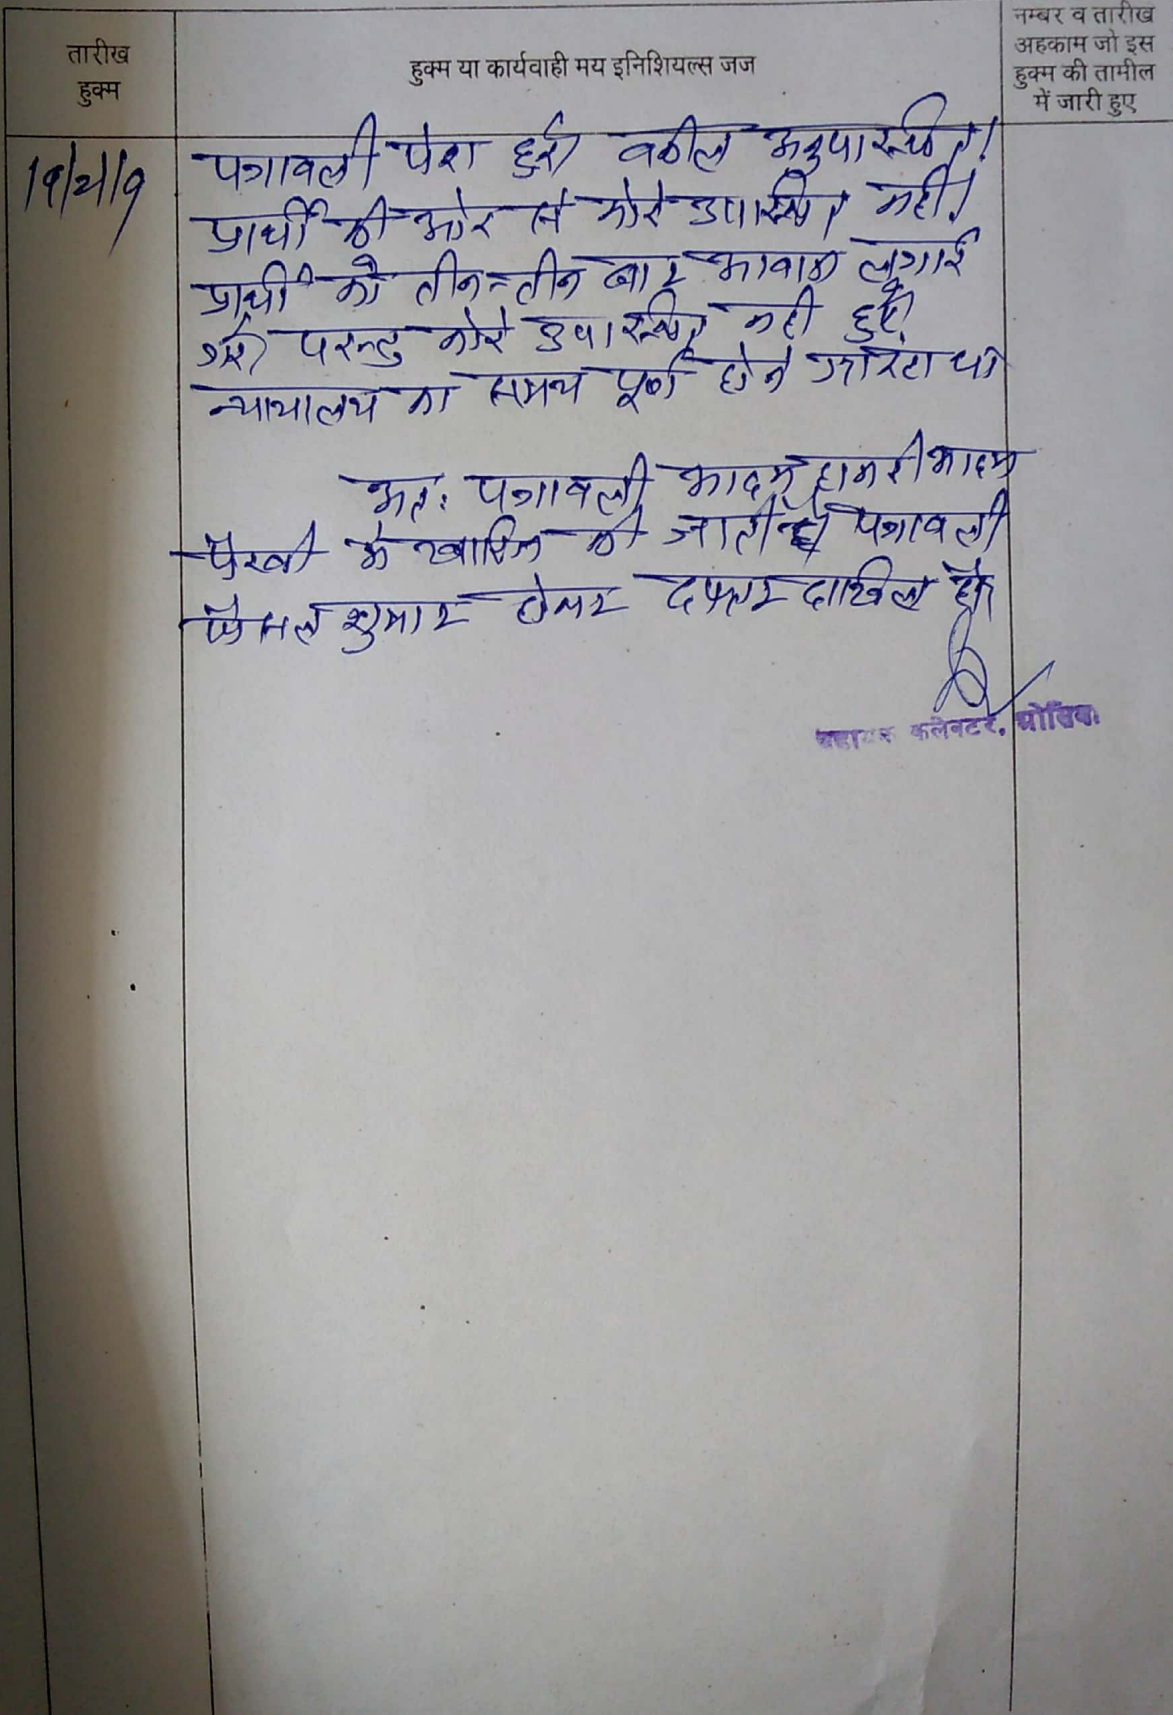 तारीख
हुक्म
हुक्म या कार्यवाही मय इनिशियल्स जज
नम्बर व तारीख
अहकाम जो इस
हुक्म की तामील
में जारी हुए
पत्रावली पेश हुई। वकील अनुपस्थित।
प्रार्थी की ओर से कोई उपस्थित नहीं।
प्रार्थी को तीन-तीन बार आवाज लगाई
गई। परन्तु कोई उपस्थित नही हुऐ।
न्यायालय का समय पूर्ण होने जा रहा था
अतः पत्रावली आदम हाजरी आदम
पैरवी मे खारिज की जाती है पत्रावली
फैसल शुमार होकर दफ्तर दाखिल हो।
सहायक कलेक्टर, ओसियां